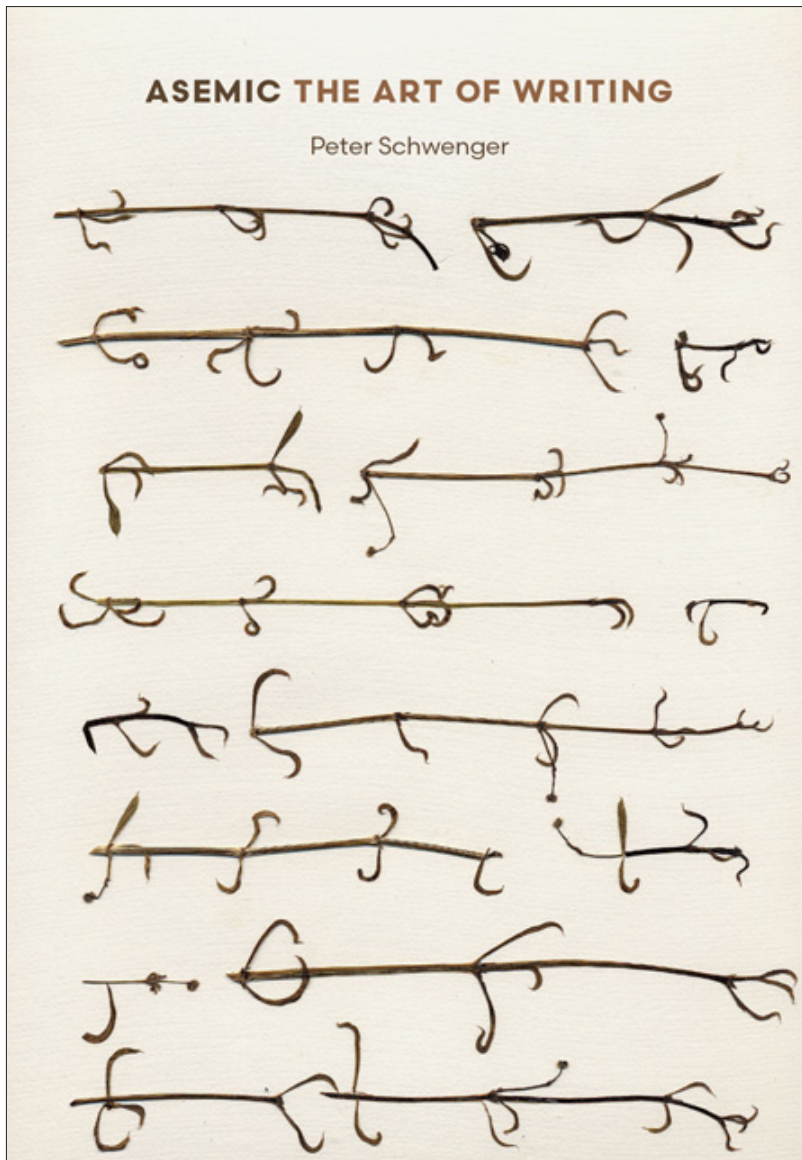 ASEMIC THE ART OF WRITING
Peter Schwenger